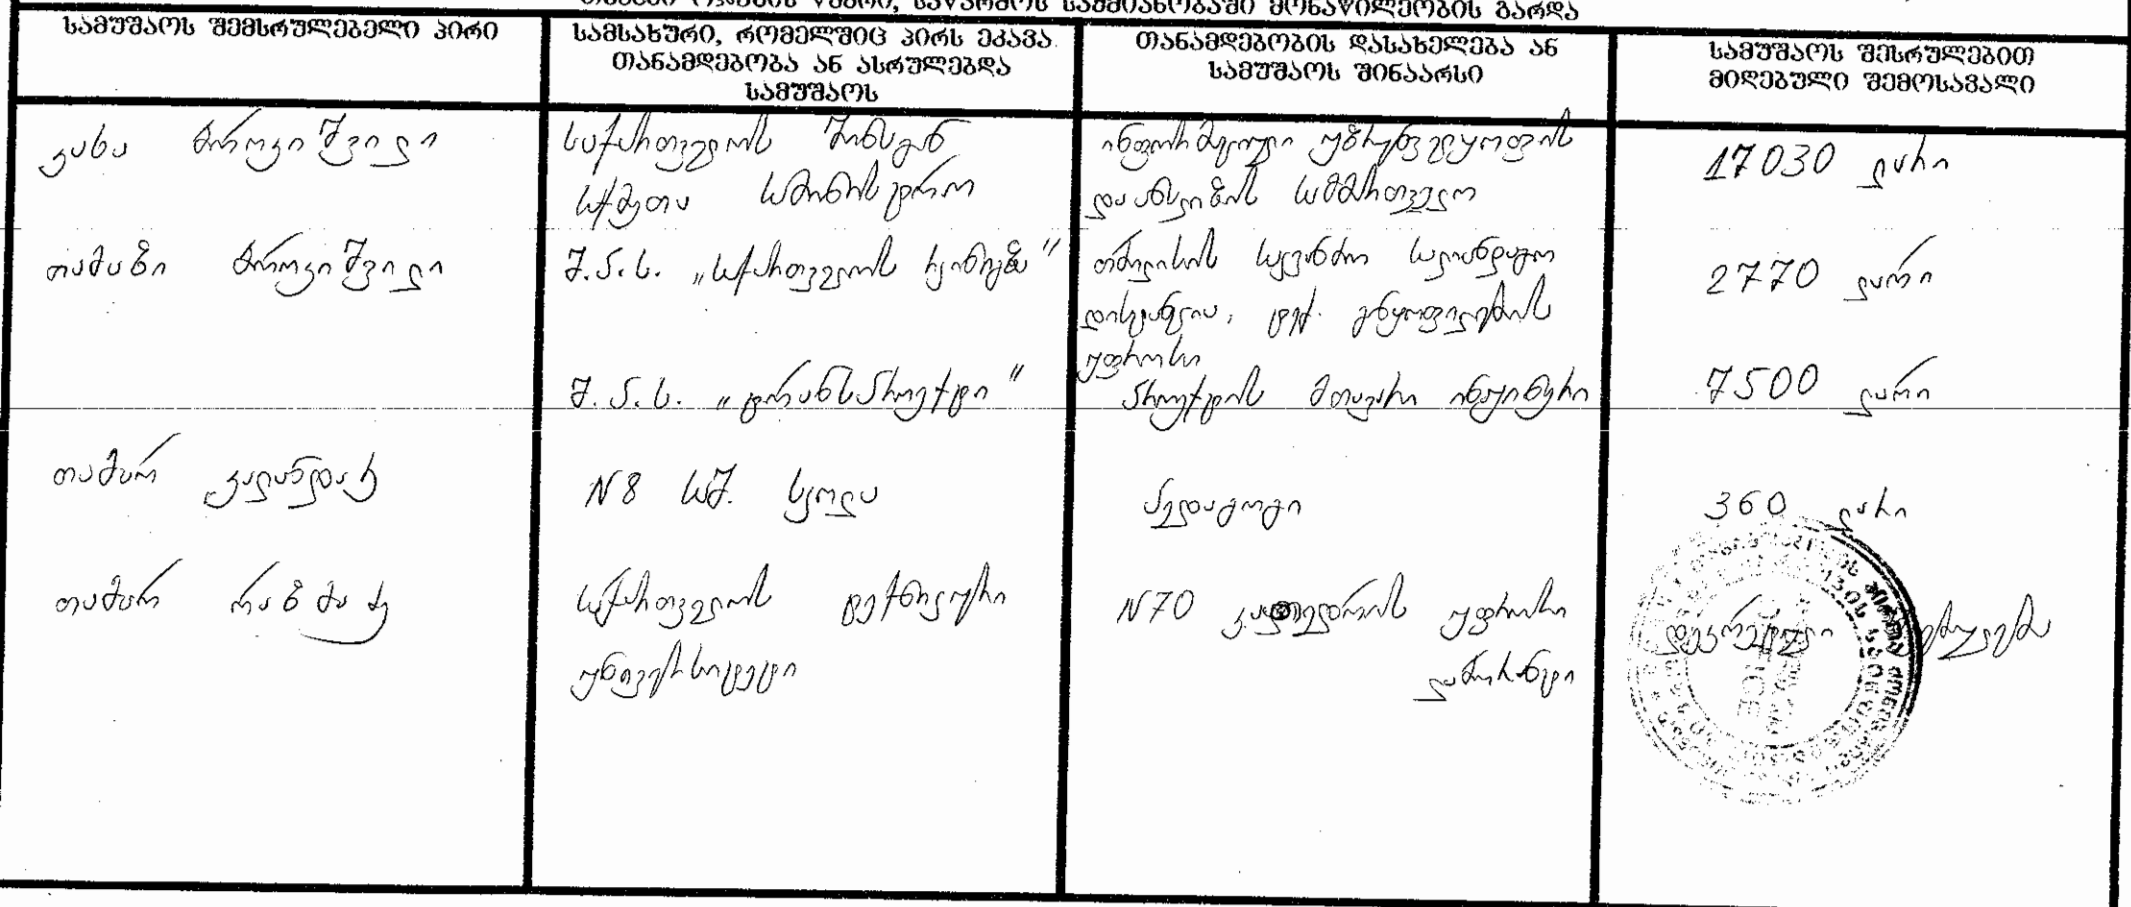 სამუშაოს შემსრულებელი პირი
სამსახური, რომელშიც პირს ეკავა
თანამდებობა ან ასრულებდა
სამუშაოს
თანამდებობის დასახელება ან
სამუშაოს შინაარსი
სამუშაოს შესრულებით
მიღებული შემოსავალი
კახა ბროკიშვილი
საქართველოს შინაგან
საქმეთა სამინისტრო
ინფორმაციული უზრუნველყოფის
და ანალიზის სამმართველო
17030 ლარი
თამაზი ბროკიშვილი
შ.პ.ს. „საქართველოს რკინიგზა“
თბილისის სალიანდაგო
დისტანცია, ტექ. განყოფილების
უფროსი
2770 ლარი
შ.პ.ს. „ტრანსპროექტი“
პროექტის მთავარი ინჟინერი
7500 ლარი
თამარ კალანდაძე
N8 საშ. სკოლა
პედაგოგი
360 ლარი
თამარ რაზმაძე
საქართველოს ტექნიკური
უნივერსიტეტი
N70 კათედრის უფროსი
ლაბორანტი
დეკრეტული შვებულება